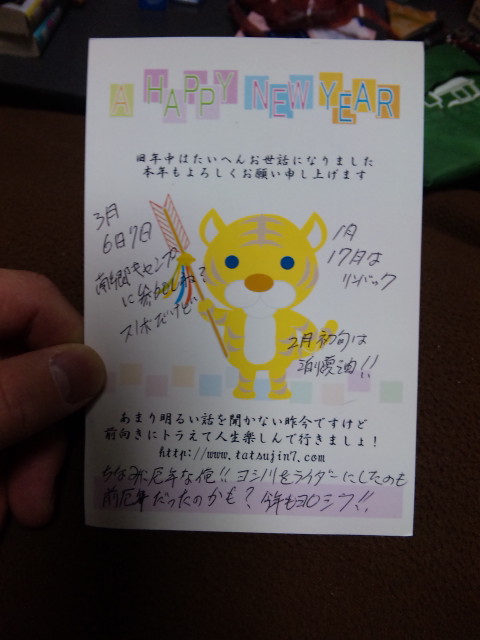 A HAPPY NEW YEAR
旧年中はたいへんお世話になりました
本年もよろしくお願い申し上げます
3月
6日7日
キャンプ
に参加しね?
スノボだけど
1月
17日は
リンバック
2月初旬は
あまり明るい話を聞かない昨今ですけど
前向きにトラえて人生楽しんで行きましょ!
http://www.tatsujin7.com
ちなみに厄年な俺!! ヨシ川をライダーにしたのも
前厄年だったのかも? 今年もヨロシク!!